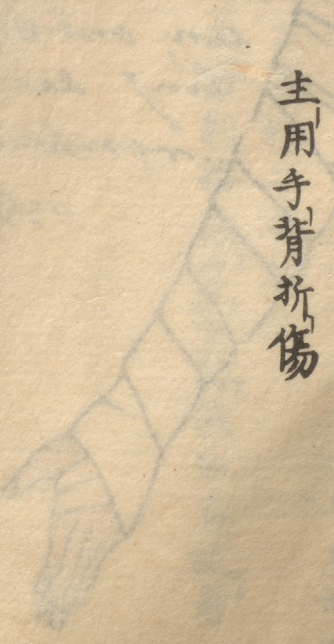 主用手背折傷